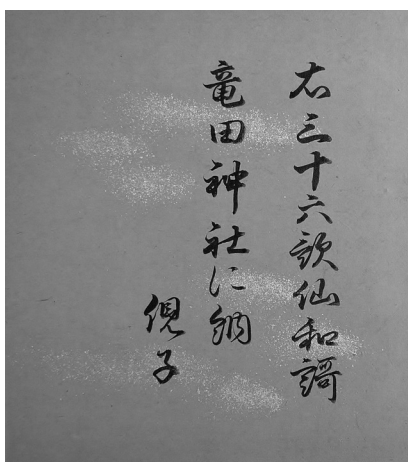 右三十六歌仙和謌
竜田神社に納
俔子